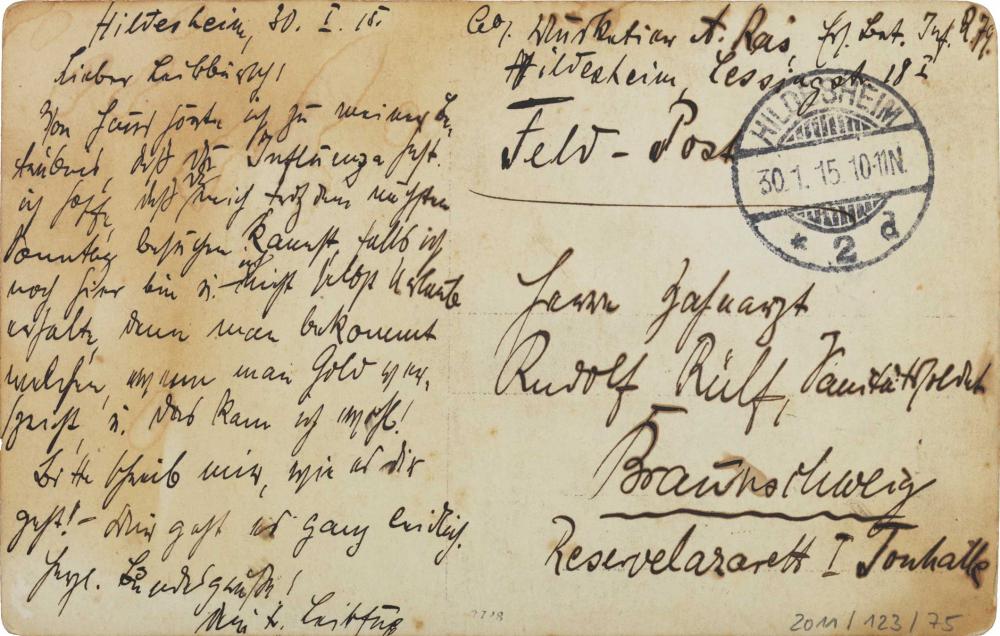 Hildesheim, 30. I. 15.
Lieber Leibbursch!
Von Haus hörte ich zu meiner Be-
trübnis, daß du Influenza hast.
ich hoffe, daß du mich trotzdem nächsten
Sonntag besuchen kannst, falls ich
noch hier bin u. ich nicht selbst Urlaub
erhalte, denn man bekommt
welchen, wenn man Gold ver-
spricht, u. das kann ich wohl!
Bitte schreib mir, wie es dir
geht! – Mir geht es ganz leidlich.
Herzl. Bundesgrüße!
Dein l. Leibfux
Abs. Musketier A. Ras, Ers. Bat. Inf. R. 79.
Hildesheim, Lessingstr. 18 I
Feld-Post
HILDESHEIM
30.1.15.10-11N.
* 2 d
Herrn Zahnarzt
Rudolf Rülf, Sanitätssoldat
Braunschweig
Reservelazarett I Tonhalle
2011/123/75